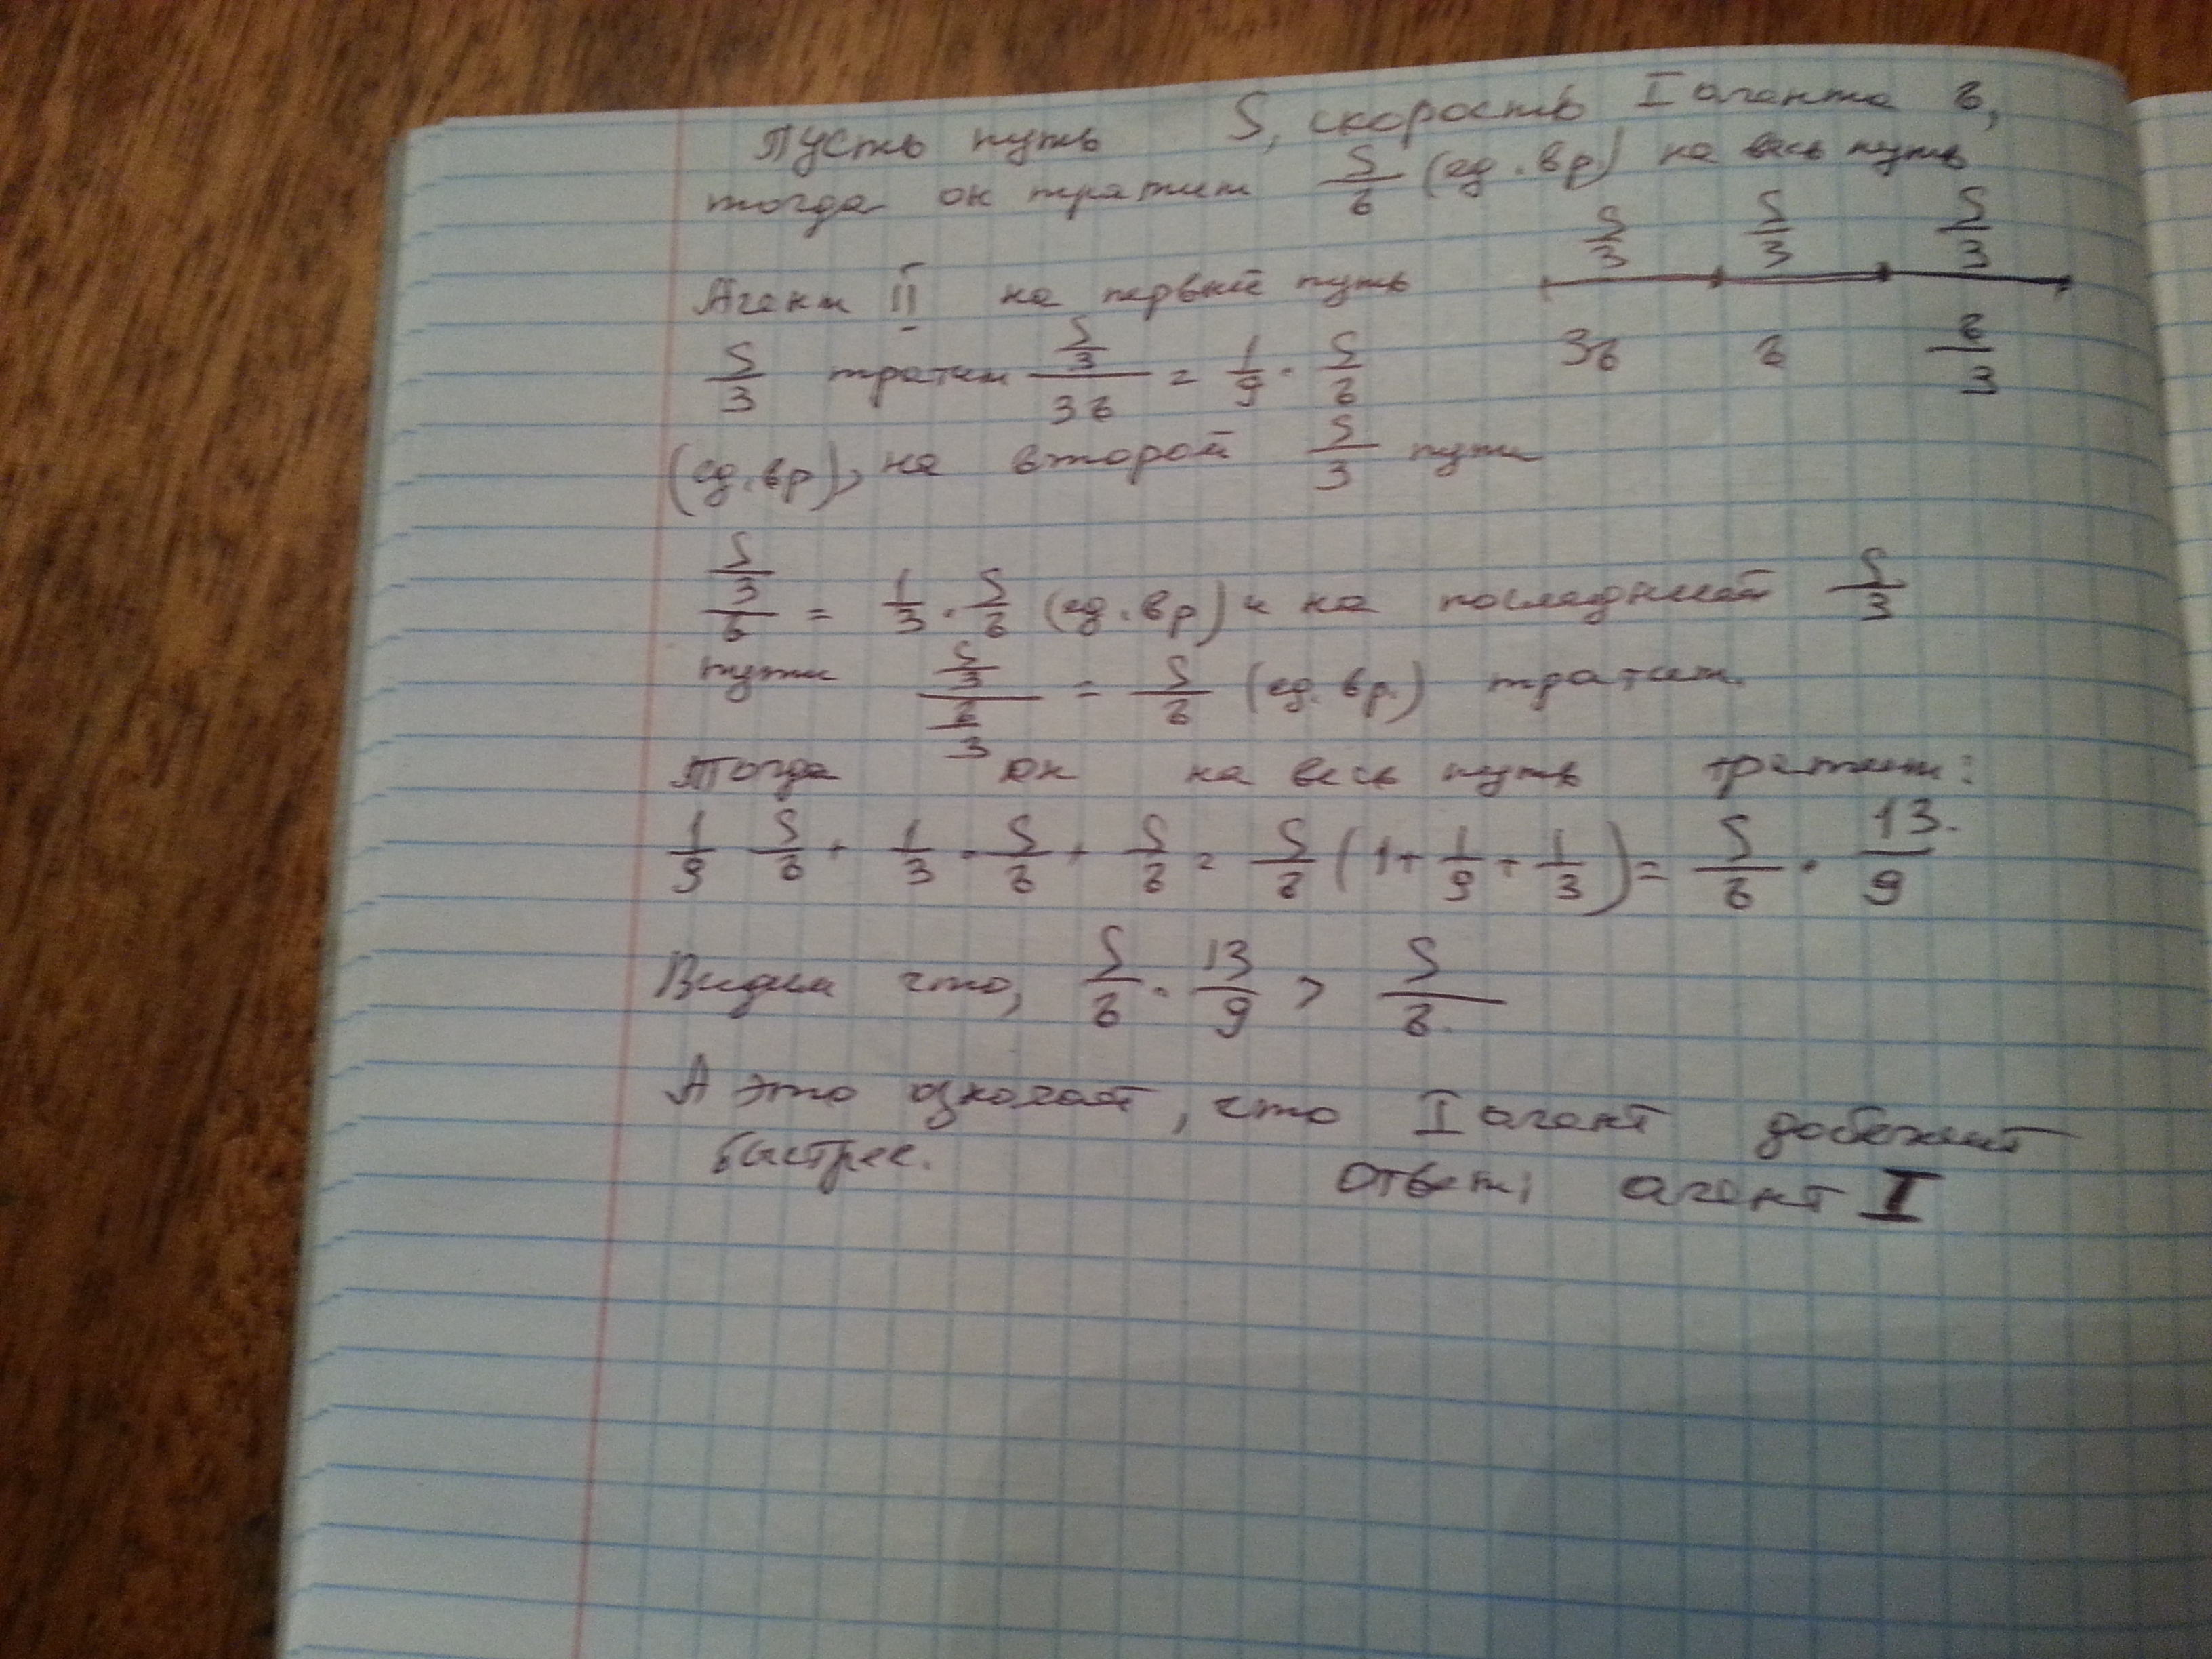 Пусть путь S, скорость I агента в,
тогда он тратит S/в (ед. вр) на весь путь
S/3 S/3 S/3
Агент II на первый путь
3в в в/3
S/3 тратит (S/3)/(3в) = 1/9 · S/в
(ед. вр), на второй S/3 пути
(S/3)/в = 1/3 · S/в (ед. вр) и на последней S/3
пути (S/3)/(в/3) = S/в (ед. вр.) тратит.
Тогда он на весь путь тратит:
1/9 S/в + 1/3 · S/в + S/в = S/в (1 + 1/9 + 1/3) = S/в · 13/9
Видим что, S/в · 13/9 > S/в.
А это означает, что I агент добежит
быстрее.
Ответ: агент I